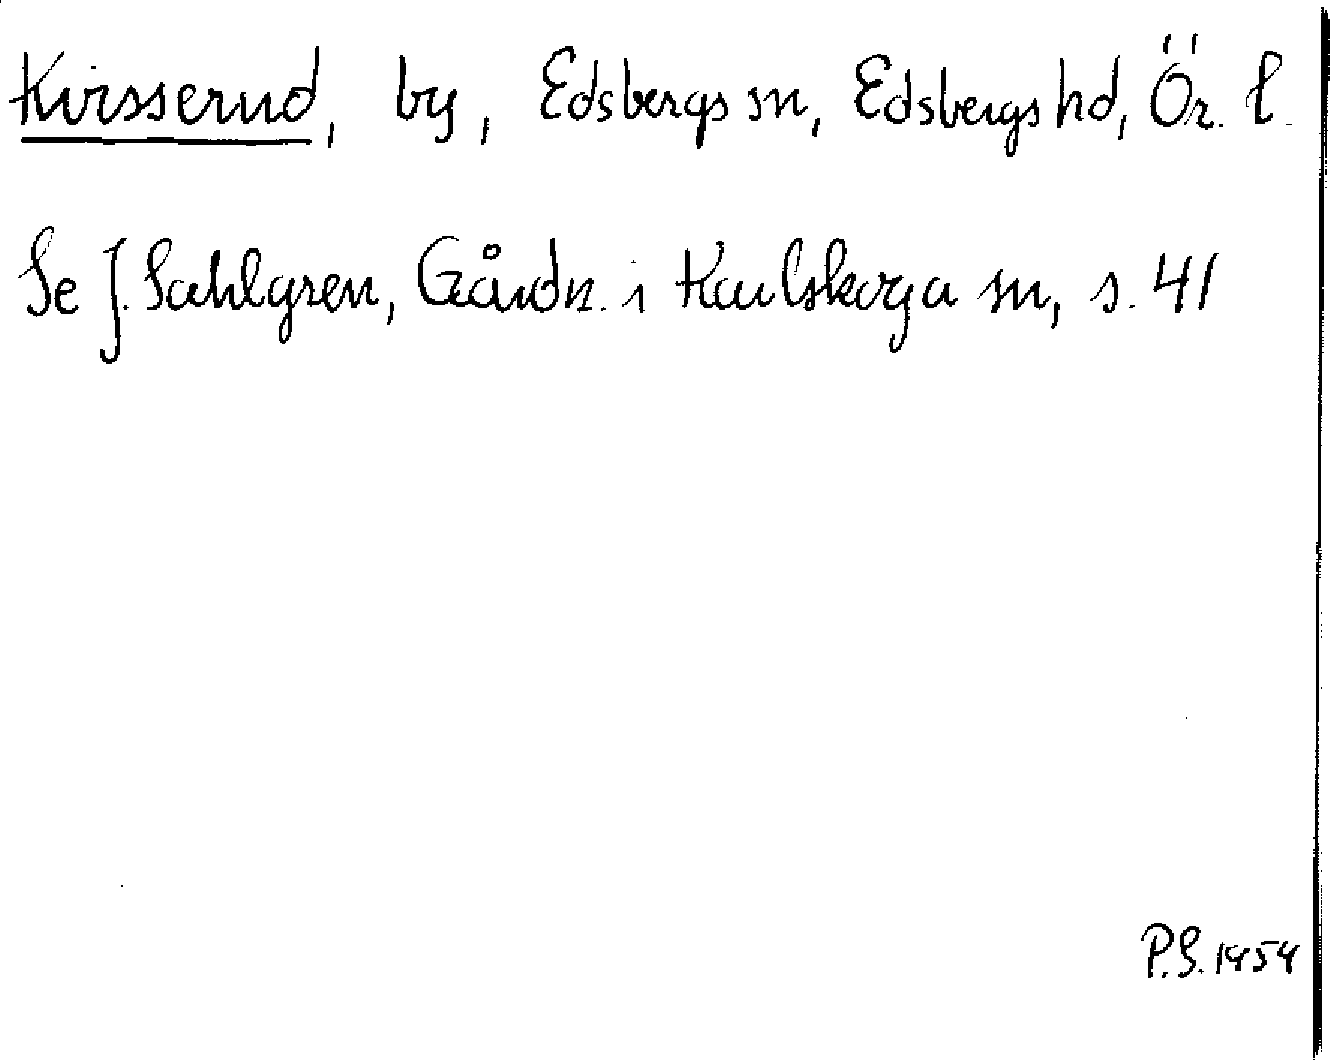 Kvisserud, by, Edsbergs sn, Edsbergs hd, Ör. l.
Se J. Sahlgren, Gårdn. i Karlskoga sn, s. 41
P.S. 1954